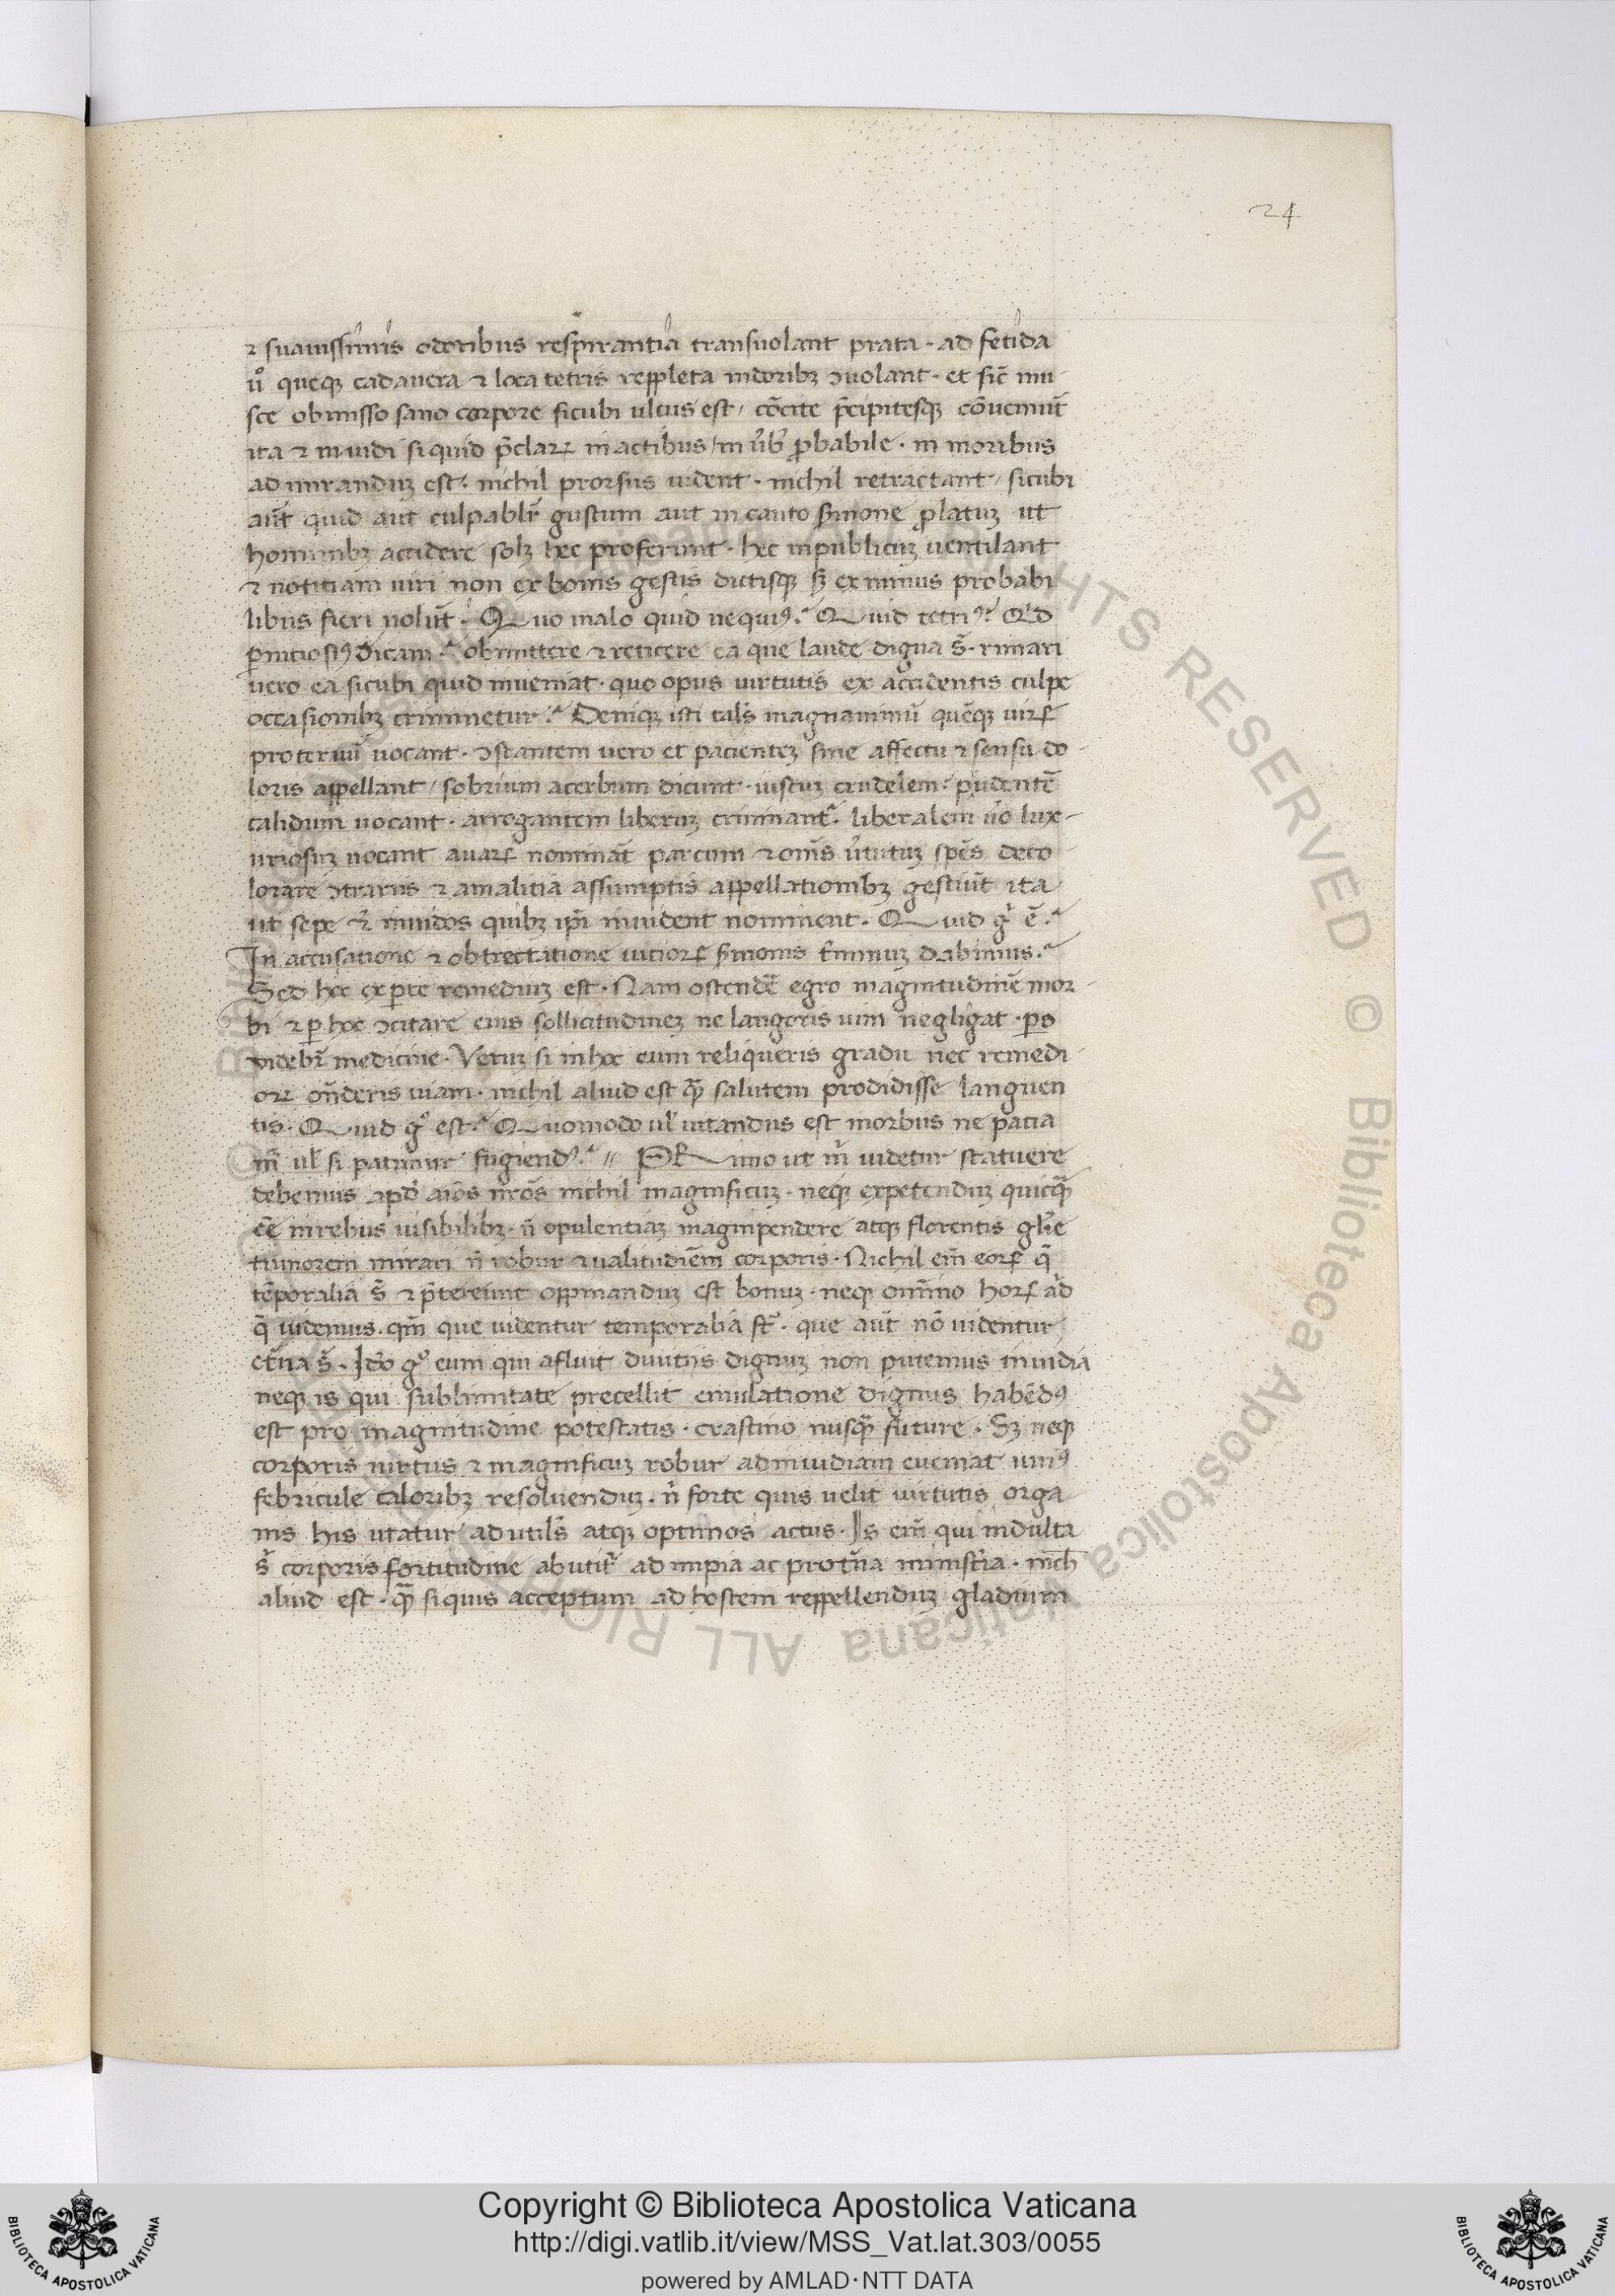 24
⁊ suauissimis odoribus respirantia transuolant prata · ad fetida
uͦ queqꝫ cadauera ⁊ loca tetris reppleta nidoribꝫ ↄuolant · et sic̄ mu
sce obmisso sano corpore sicubi ulcus est / cōcite p̄cipitesqꝫ cōueniūt
ita ⁊ inuidi si quid p̄claꝝ in actibus / in ūb̄ ꝓbabile · in moribus
admiranduꝫ est · nichil prorsus uident · nichil retractant / sicubi
aūt quid aut culpabłr gustum aut in cauto s̄mone ꝓlatuꝫ ut
hominibꝫ accidere solꝫ hec proferunt · hec inpublicuꝫ uentilant
⁊ notitiam uiri non ex bonis gestis dictisqꝫ sꝫ ex minus probabi
libus fieri uolūt · Quo malo quid nequiꝰ? Quid tetriꝰ? Qͥd
ꝑnitiosiꝰ dicam? obmittere ⁊ reticere ea que laude digna s̄t · rimari
uero ea sicubi quid inueniat · quo opus uirtutis ex accidentis culpe
occasionibꝫ criminetur? Deniqꝫ isti tal̄s magnanimū quēqꝫ uiꝝ
proteruū uocant · ↄstantem uero et pacienteꝫ sine affectu ⁊ sensu do-
loris appellant / sobrium acerbum dicunt · iustuꝫ crudelem · prudentē
calidum uocant · arrogantem liberuꝫ criminant᷑ · liberalem ūo lux-
uriosuꝫ uocant auaꝝ nominat̄ parcum ⁊ om̄s ūtutuꝫ spēs deco
lorare ↄtrariis ⁊ amalitia assumptis appellationibꝫ gestiūt ita
ut sepe ⁊ inuidos quibꝫ ip̄i inuident nominent · Quid gͦ ē?
In accusatione ⁊ obtrectatione uicioꝝ s̄monis t̄minuꝫ dabimus?
Sed hec ex ꝑte remediuꝫ est · Nam ostendē egro magnitudinē mor-
bi ⁊ ꝑ hoc ↄcitare eius sollicitudineꝫ ne langoris uim negligat · ꝑs
uidebr̄ medicine · Veruꝫ si in hoc eum reliqueris gradu nec remedi-
oꝝ on̄deris uiam · nichil aliud est qꝫ̄ salutem prodidisse languen
tis · Quid gͦ est? Quomodo ul̄ uitandus est morbus ne patia
m̄ ul̄ si patimur fugiendꝰ? // PRimo ut m̄ videtur statuere
debemus apd̄ aīos nr̄os nichil magnificuꝫ · neqꝫ expetenduꝫ quicqꝫ̄
eē in rebus uisibilibꝫ · n̄ opulentiaꝫ magnipendere atqꝫ florentis gl̄ie
tumorem mirari n̄ robur ⁊ ualitudiēm corporis · Nichil em̄ eoꝝ q̄
tēporalia s̄t ⁊ p̄tereunt oppinanduꝫ est bonuꝫ · neqꝫ omīno hoꝝ ad
q̄ uidemus · qm̄ que uidentur temporalia st᷑ · que aūt nō uidentur
et̄na s̄t · Ido gͦ eum qui afluit diuitiis dignuꝫ non putemus inuidia
neqꝫ is qui sublimitate precellit emulatione dignus habēdꝰ
est pro magnitudine potestatis · crastino nusqꝫ̄ future · Sꝫ neqꝫ
corporis uirtus ⁊ magnificuꝫ robur ad inuidiam eueniat uniꝰ
febricule caloribꝫ resoluenduꝫ · n̄ forte quis uelit uirtutis orga
nis his utatur ad util̄s atqꝫ optimos actus · Is em̄ qui indulta
s̄ corporis fortitudine abutit᷑ ad impia ac prot̄ua minist̄ia · nich̄
aliud est · qꝫ̄ siquis acceptum ad hostem reppellenduꝫ gladium
© Biblioteca Apostolica Vaticana ALL RIGHTS RESERVED
Copyright © Biblioteca Apostolica Vaticana
http://digi.vatlib.it/view/MSS_Vat.lat.303/0055
powered by AMLAD·NTT DATA
BIBLIOTECA APOSTOLICA VATICANA
BIBLIOTECA APOSTOLICA VATICANA